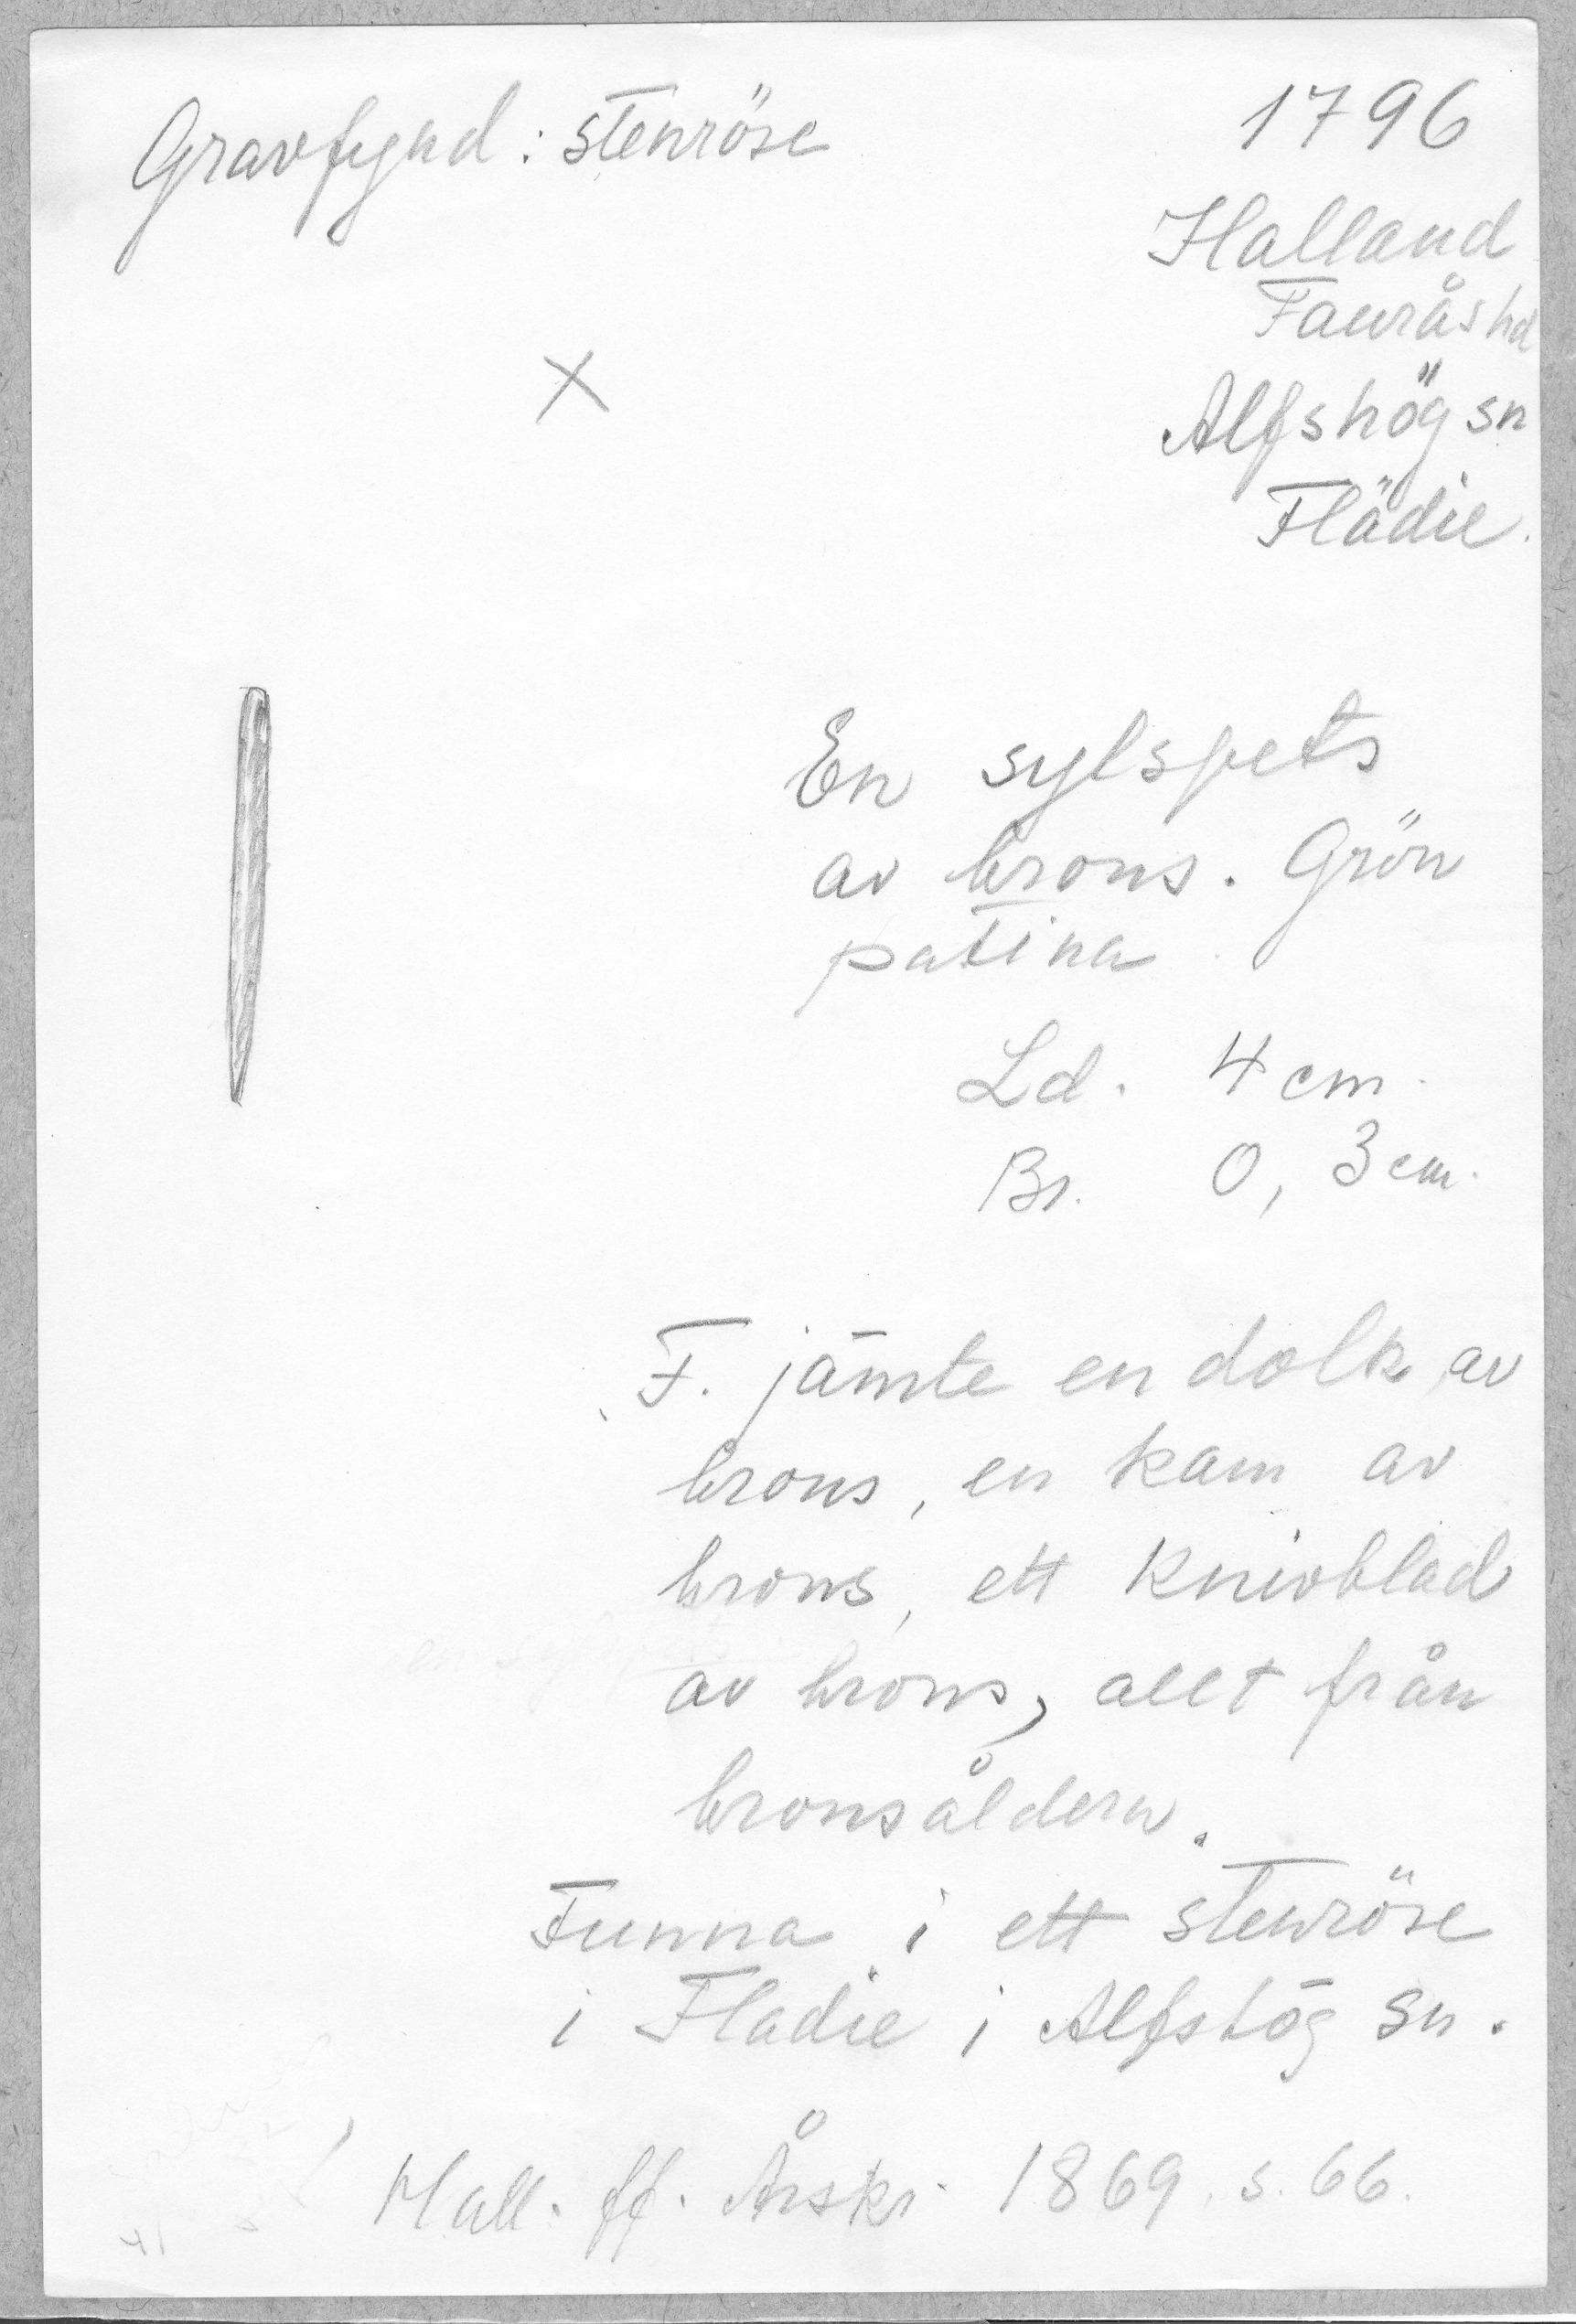 Gravfynd: stenröse
1796
Halland
Faurås hd
Alfshög sn
Flädie.
X
En sylspets
av brons. Grön
patina.
Ld. 4 cm.
Br. 0,3 cm.
F. jämte en dolk av
brons, en kam av
brons, ett knivblad
av brons, allt från
bronsåldern.
Funna i ett stenröse
i Fladie i Alfshög sn.
Hall. ff. Årskr. 1869. s. 66.